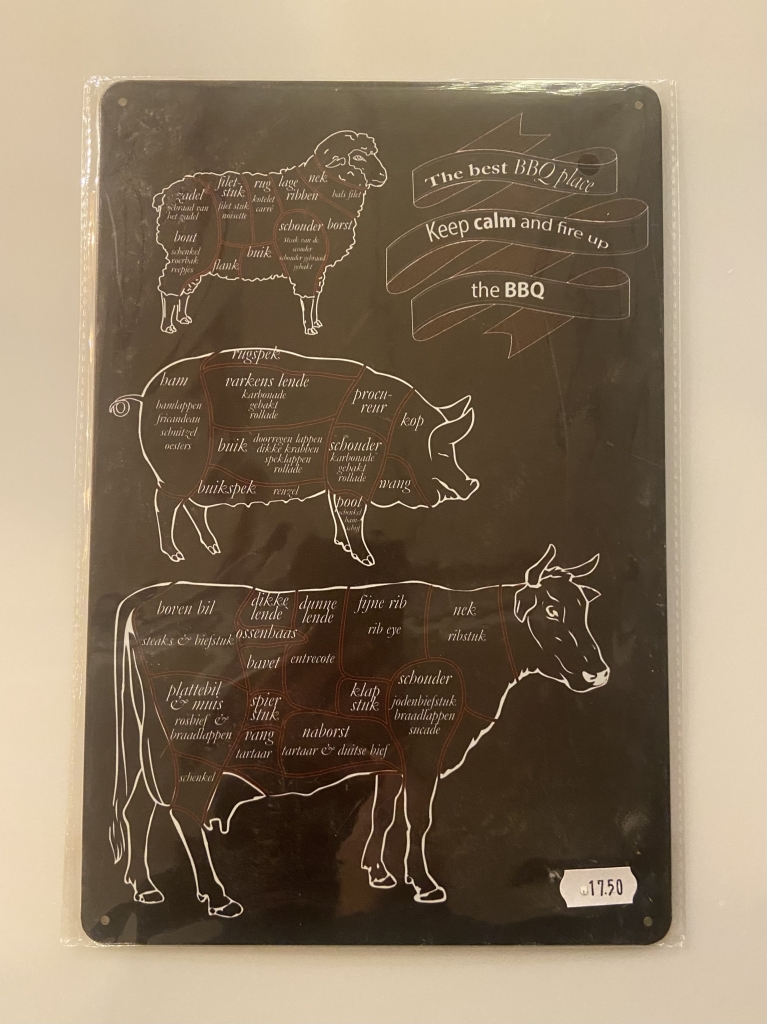 The best BBQ place
Keep calm and fire up
the BBQ
zadel
gebraad van
het zadel
filet
stuk
filet stuk
noisette
rug
kotelet
carré
lage
ribben
nek
hals filet
bout
schenkel
roerbak
reepjes
flank
buik
schouder
schouder gebraad
gehakt
borst
rugspek
ham
hamlappen
fricandeau
schnitzel
oesters
varkens lende
karbonade
gehakt
rollade
procu-
reur
kop
buik
doorregen lappen
dikke krabben
speklappen
rollade
schouder
karbonade
gehakt
rollade
wang
buikspek
reuzel
poot
schenkel
ham-
schijf
boven bil
steaks & biefstuk
dikke
lende
dunne
lende
ossenhaas
bavet
entrecote
fijne rib
rib eye
nek
ribstuk
plattebil
& muis
rosbief &
braadlappen
spier
stuk
klap
stuk
schouder
jodenbiefstuk
braadlappen
sucade
vang
tartaar
naborst
tartaar & duitse bief
schenkel
17.50